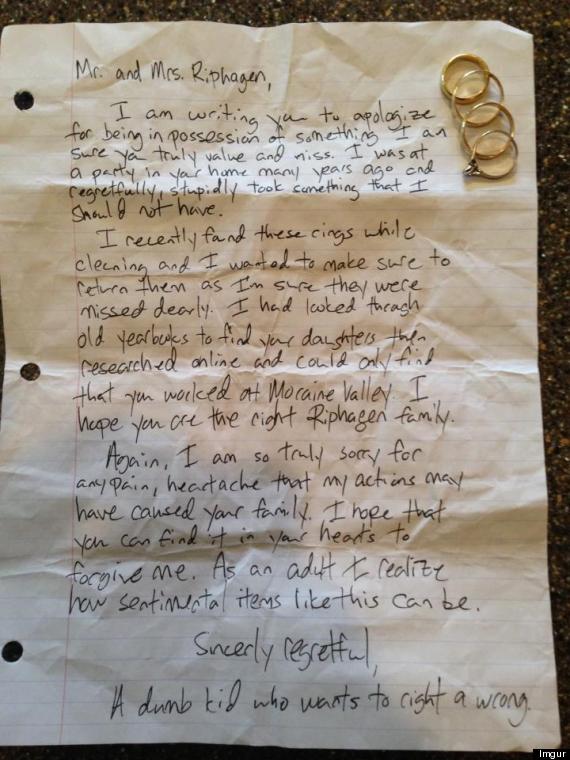 Mr. and Mrs. Riphagen,
I am writing you to apologize
for being in possession of something I am
sure you truly value and miss. I was at
a party in your home many years ago and
regretfully, stupidly took something that I
should not have.
I recently found these rings while
cleaning and I wanted to make sure to
return them as I'm sure they were
missed dearly. I had looked through
old yearbooks to find your daughters then
researched online and could only find
that you worked at Moraine Valley. I
hope you are the right Riphagen family.
Again, I am so truly sorry for
any pain, heartache that my actions may
have caused your family. I hope that
you can find it in your hearts to
forgive me. As an adult I realize
how sentimental items like this can be.
Sincerly regretful,
A dumb kid who wants to right a wrong.
Imgur